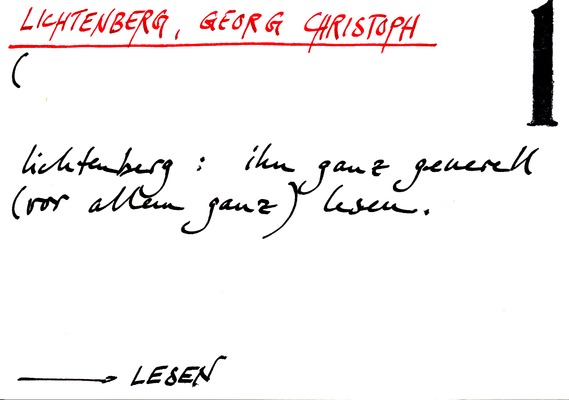 LICHTENBERG, GEORG CHRISTOPH
1
(
lichtenberg : ihn ganz generell
(vor allem ganz) lesen.
→ LESEN